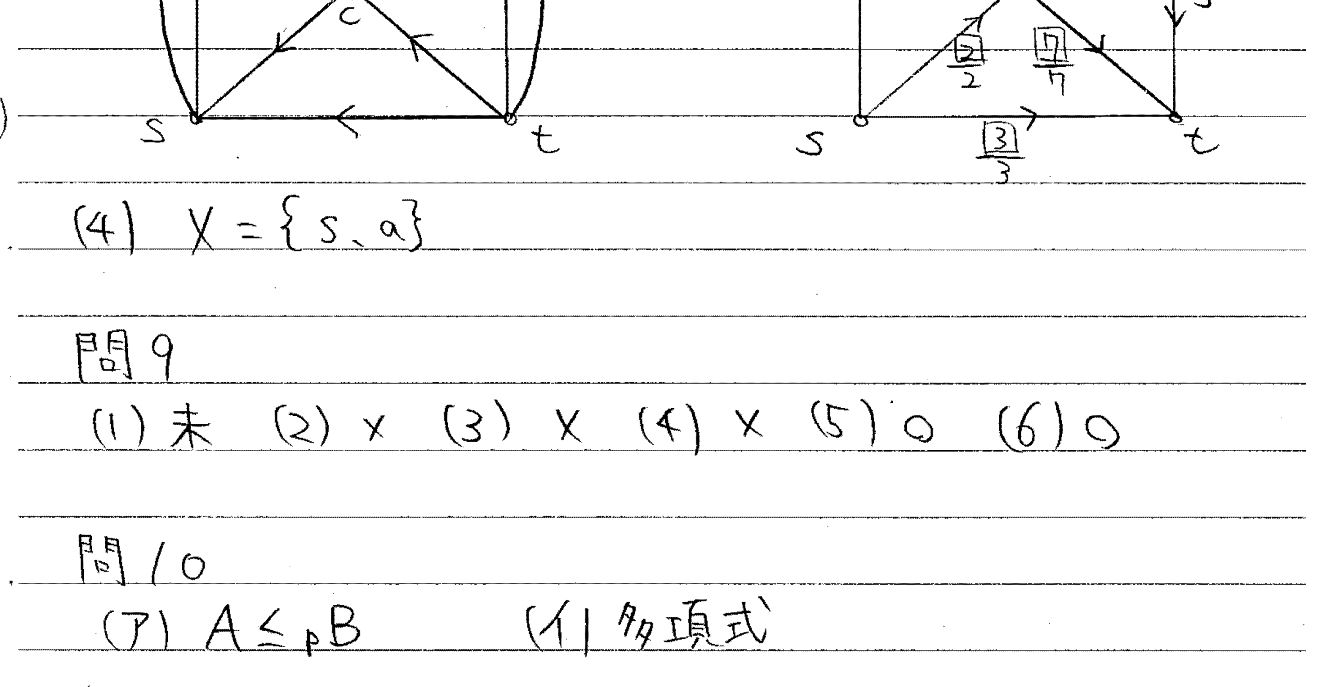 c
2
2
7
7
s t s 3 t
3
(4) X = {s、a}
問9
(1) 未 (2) × (3) × (4) × (5) ○ (6) ○
問10
(ア) A ≤ₚ B (イ) 多項式